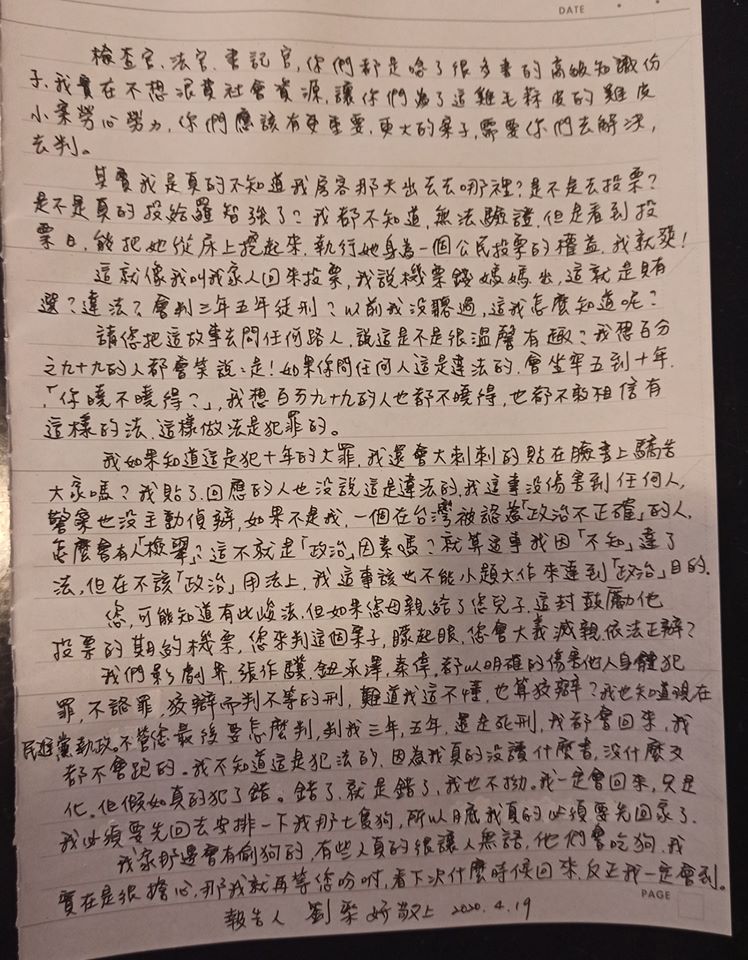 DATE
檢查官、法官、書記官,你們都是啃了很多書的高級知識份
子,我實在不想浪費社會資源,讓你們為了這雞毛蒜皮的雞皮
小案勞心勞力,你們應該有更重要、更大的案子,需要你們去解決,
去判。
其實我是真的不知道我房客那天出去去哪裡?是不是去投票?
是不是真的投給羅智強了?我都不知道,無法驗證,但是看到投
票日,能把她從床上挖起來,執行她身為一個公民投票的權益,我就爽!
這就像我叫我家人回來投票,我說機票錢媽媽出,這就是賄
選?違法?會判三年五年徒刑?以前我沒聽過,這我怎麼知道呢?
請您把這故事去問任何路人,說這是不是很溫馨有趣?我想百分
之九十九的人都會笑說:是!如果你問任何人這是違法的,會坐牢五到十年,
「你曉不曉得?」,我想百分九十九的人也都不曉得,也都不敢相信有
這樣的法,這樣做法是犯罪的。
我如果知道這是犯十年的大罪,我還會大刺刺的貼在臉書上驕告
大家嗎?我貼了,回應的人也沒說這是違法的,我這事沒傷害到任何人,
警察也沒主動偵辦,如果不是我,一個在台灣被認為「政治不正確」的人,
怎麼會有人「檢舉」?這不就是「政治」因素嗎?就算這事我因「不知」違了
法,但在不該「政治」用法上,我這事該也不能小題大作來達到「政治」目的.
您,可能知道有此峻法,但如果您母親給了您兒子,這封鼓勵他
投票的期約機票,您來判這個案子,矇起眼,您會大義滅親,依法正辦?
我們影劇界,張作驥,鈕承澤,秦偉,都以明確的傷害他人身體犯
罪,不認罪,狡辯而判不等的刑,難道我這不懂,也算狡辯?我也知道現在
民進黨執政。不管您最後要怎麼判,判我三年,五年,還是死刑,我都會回來,我
都不會跑的。我不知道這是犯法的,因為我真的沒讀什麼書,沒什麼文
化。但假如真的犯了錯。錯了,就是錯了,我也不拗。我一定會回來,只是
我必須要先回去安排一下我那七隻狗,所以月底我真的必須要先回家了.
我家那邊會有偷狗的,有些人真的很讓人無語,他們會吃狗,我
實在是很擔心,那我就再等您吩咐,看下次什麼時候回來,反正我一定會到.
報告人 劉樂妍敬上 2020.4.19
PAGE